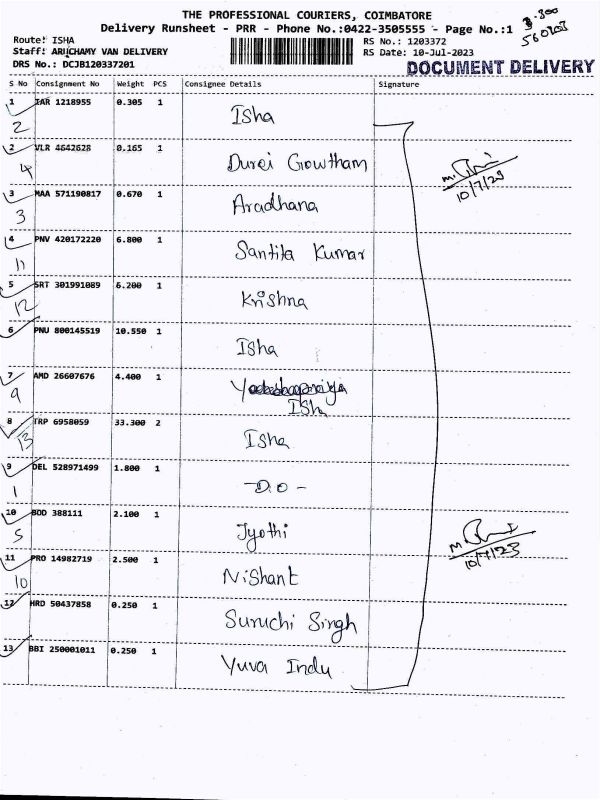 THE PROFESSIONAL COURIERS, COIMBATORE
Delivery Runsheet - PRR - Phone No.:0422-3505555 - Page No.:1
560303
Route: ISHA
RS No.: 1203372
Staff: ARUCHAMY VAN DELIVERY
RS Date: 10-Jul-2023
DRS No.: DCJB120337201
DOCUMENT DELIVERY
S No Consignment No Weight PCS Consignee Details Signature
1 IAR 1218955 0.305 1 Isha
2
2 VLR 4642628 0.165 1 Durei Gowtham
4
10/7/23
3 MAA 571190817 0.670 1 Aradhana
3
4 PNV 420172220 6.800 1 Santila Kumar
11
5 SRT 301991089 6.200 1 Krishna
12
6 PNU 800145519 10.550 1 Isha
7 AMD 26607676 4.400 1
9 Isha
8 TRP 6958059 33.300 2 Isha
13
9 DEL 528971499 1.800 1 -D.O-
1
10 BDD 388111 2.100 1 Jyothi
5
10/7/23
11 PRO 14982719 2.500 1 Nishant
10
12 HRD 50437858 0.250 1 Suruchi Singh
13 BBI 250001011 0.250 1 Yuva Indu